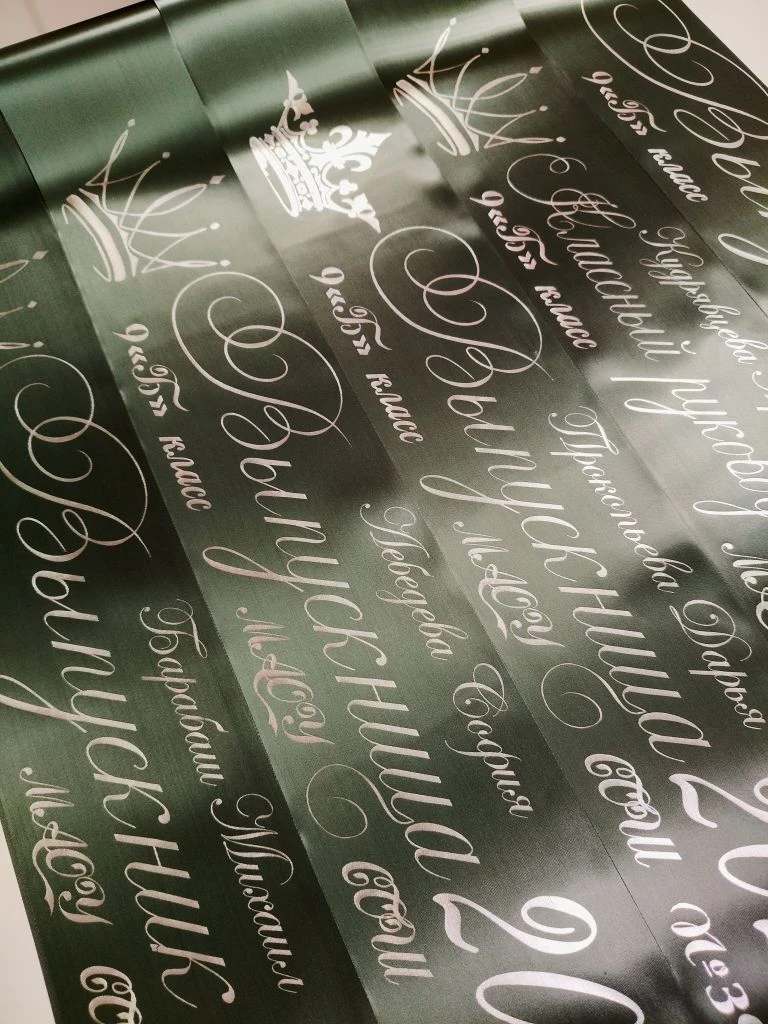 Выпускник
Барабаш Михаил
МАОУ СОШ
9 «Б» класс
Выпускница 20
Лебедева София
МАОУ СОШ
9 «Б» класс
Выпускница 20
Прокопьева Дарья
МАОУ СОШ №3
9 «Б» класс
Классный
Кудрявцева
9 «Б» класс